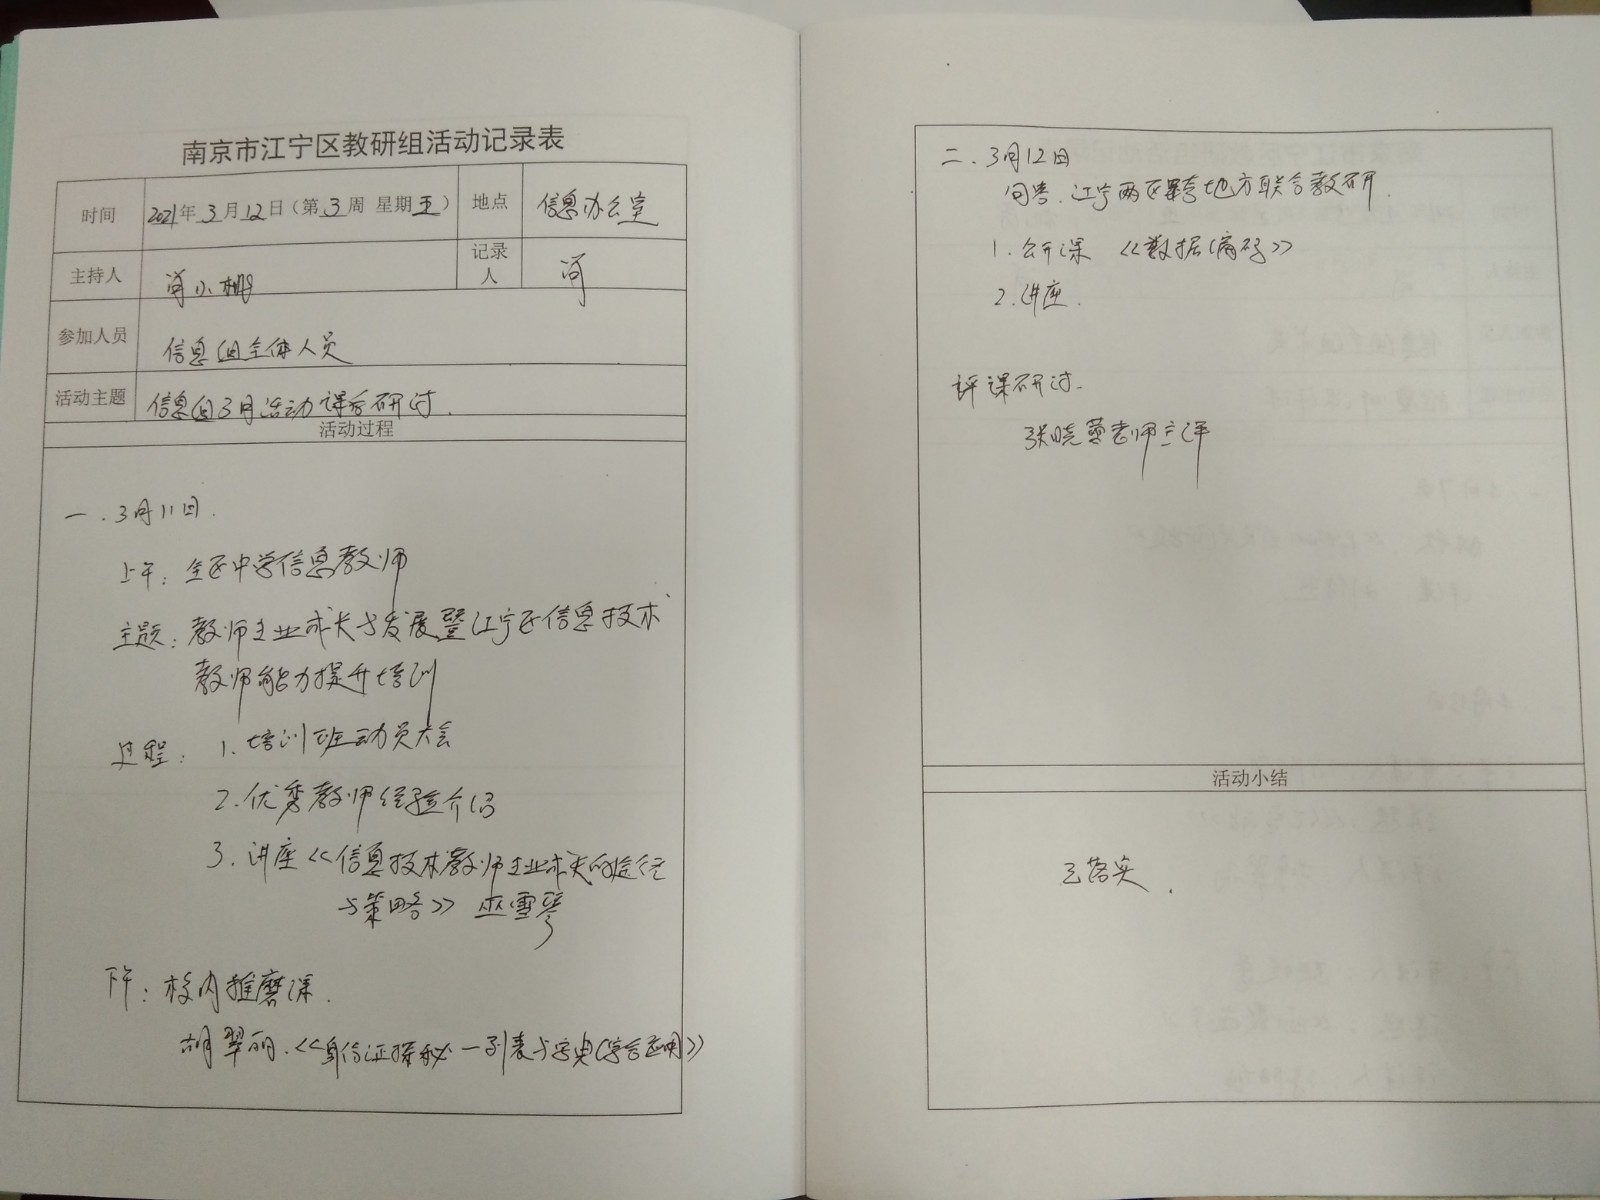 南京市江宁区教研组活动记录表
时间 2021年3月12日(第3周 星期五) 地点 信息办公室
主持人 小 记录人
参加人员 信息组全体人员
活动主题 信息组3月活动 课后研讨.
活动过程
一.3月11日.
上午:全区中学信息教师
主题:教师专业成长与发展暨江宁区信息技术
教师能力提升培训
过程:1.培训班动员大会
2.优秀教师经验介绍
3.讲座<<信息技术教师专业成长的途径
与策略>> 巫雪琴
下午:校内推磨课.
胡翠丽.<<身份证探秘—列表与字典>>
二.3月12日
江宁两区跨地方联合教研.
1.公开课 <<数据编码>>
2.讲座.
评课研讨.
张晓蕾老师主评
活动小结
已落实.